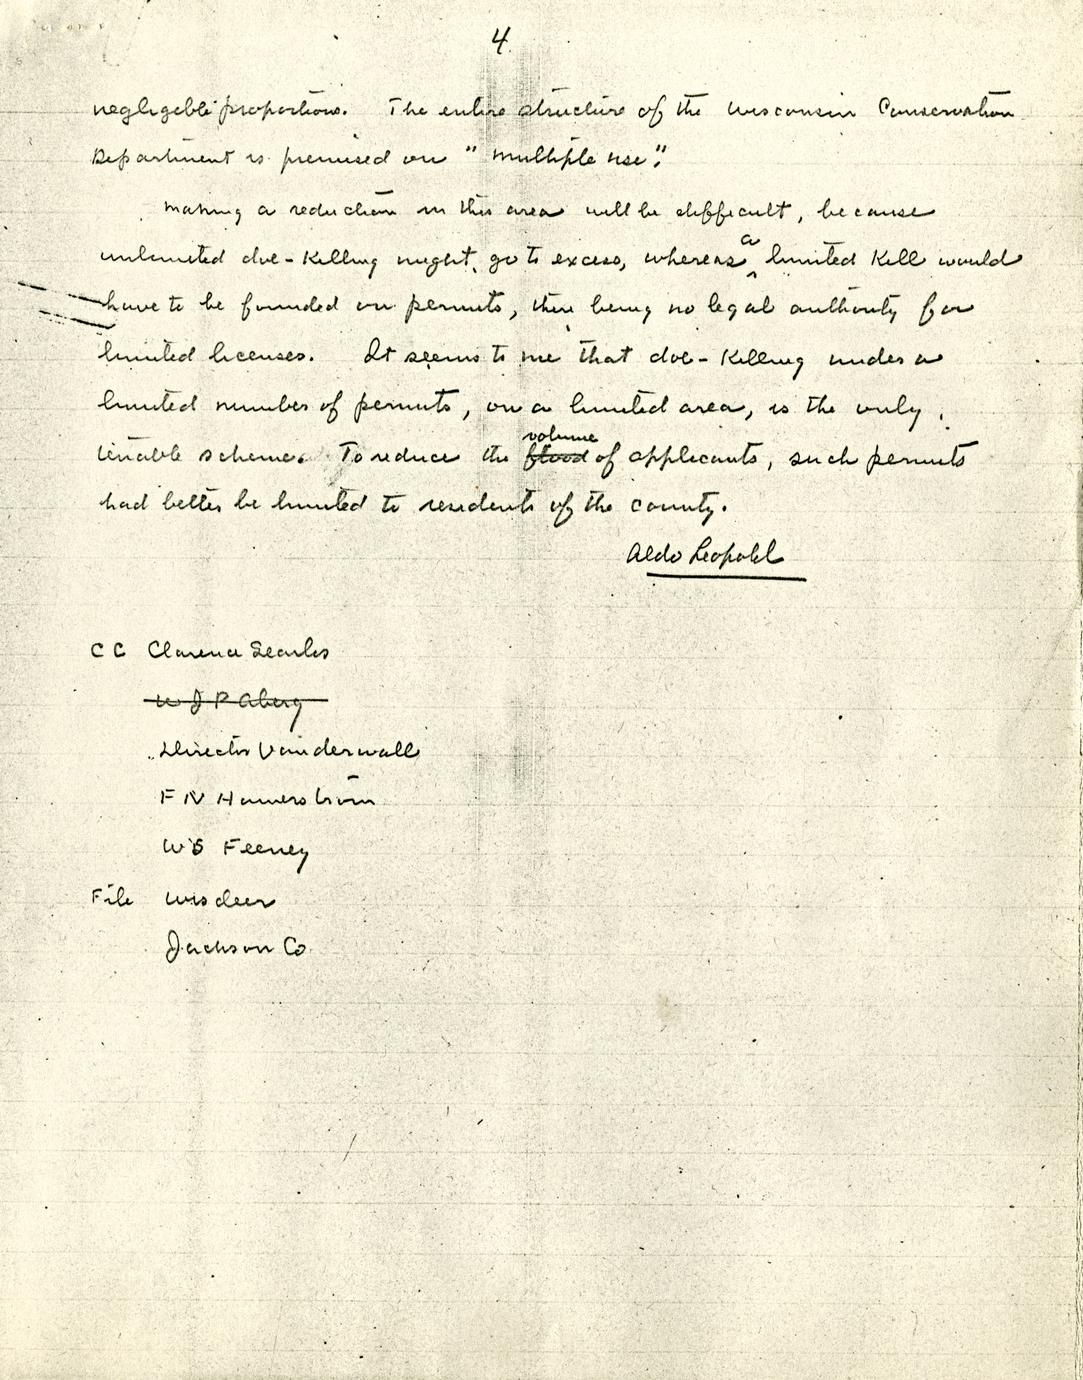 4
negligible proportions. The entire structure of the Wisconsin Conservation
Department is premised on "multiple use".
Making a reduction in this area will be difficult, because
unlimited doe-killing might go to excess, whereas a limited kill would
have to be founded on permits, there being no legal authority for
limited licenses. It seems to me that doe-killing under a
limited number of permits, on a limited area, is the only
tenable scheme. To reduce the flood volume of applicants, such permits
had better be limited to residents of the county.
Aldo Leopold
CC Clarence Searles
W J P Aberg
Director Vanderwall
F N Hamerstrom
W S Feeney
File Wis deer
Jackson Co